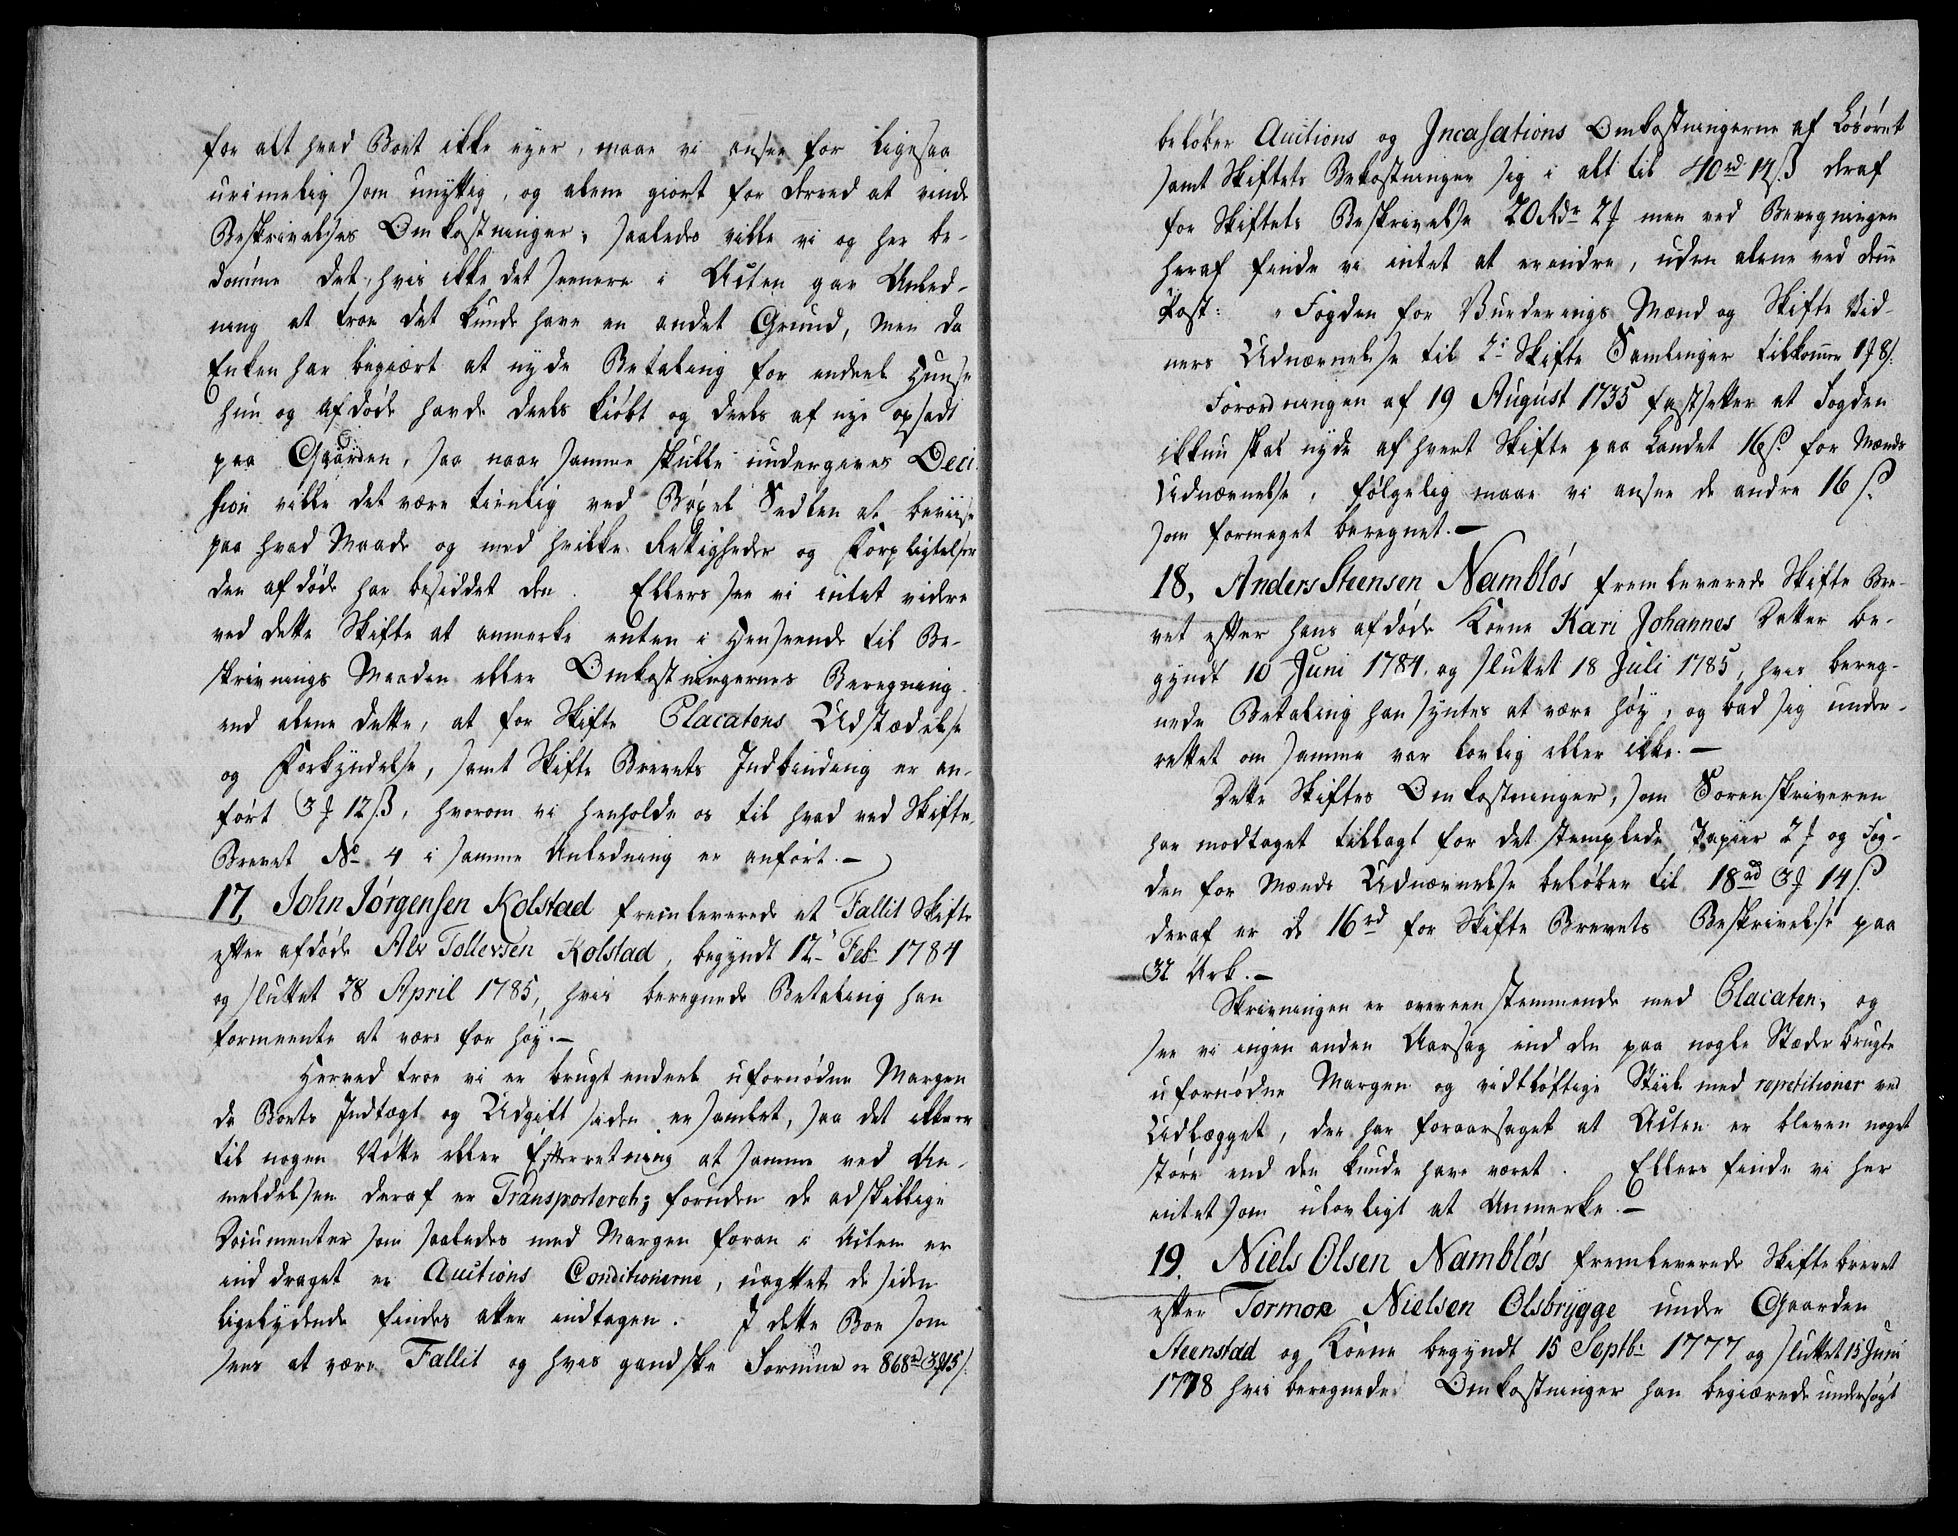 for alt hvad Boet ikke ejer, maae vi ansee for ligesaa
urimelig som unyttig, og alene giort for derved at vinde
Beskrivelses Omkostninger, saaledes ville vi og her be-
dømme det, hvis ikke det seenere i Acten gav Anled-
ning at troe det kunde have en andet Grund, men da
Enken har begiært at nyde Betaling for endeel Huuse
hun og Afdøde havde deels kiøbt og deels af nye opsadt
paa Gaarden, saa naar samme skulle undergives Deci-
sion ville det være tienlig ved Bøxel Sedlen at beviise
paa hvad Maade og med hvilke Rettigheder og Forpligtelser
den afdøde har besiddet den. Ellers see vi intet videre
ved dette Skifte at anmerke enten i Henseende til Be-
skrivnings Maaden eller Omkostningernes Beregning
end alene dette, at for Skifte Placatens Udstædelse
og Forkyndelse, samt Skifte Brevets Indbinding er an-
ført 3 ƒ 12 ß, hvorom vi henholde os til hvad ved Skifte
Brevet No 4 i samme Anledning er anført.—
17, John Jørgensen Kolstad fremleverede et Fallit Skifte
efter afdøde Alv Tollevsen Kolstad, begyndt 12. Feb. 1784
og sluttet 28 April 1785, hvis beregnede Betaling han
formeente at være for høy.—
Herved troe vi er brugt endeel ufornøden Margen
da Boets Indtægt og Udgift siden er samlet, saa det ikke er
til nogen Nøtte eller Efterretning at samme ved An-
meldelsen deraf er Transporteret; foruden de adskillige
Documenter som saaledes med Margen foran i Acten er
inddraget er Auctions Conditionerne, uagtet de siden
ligelydende findes atter indtagen. I dette Boe som
sees at være Fallit og hvis gandske Formue er 868 rd 3 ƒ 15 ß.
beløber Auctions og Incasations Omkostningerne af Løsøret
samt Skiftets Bekostninger sig i alt til 40 rd 14 ß deraf
for Skiftets Beskrivelse 20 Rdr 2 ƒ men ved Beregningen
heraf finde vi intet at erindre, uden alene ved denne
Post: " Fogden for Vurderings Mænd og Skifte Vid-
ners Udnævnelse til 2de Skifte Samlinger tilkommer 1 ƒ 8 ß.
Forordningen af 19 August 1735 fastsetter at Fogden
ikkun skal nyde af hvert Skifte paa Landet 16 ß. for Mænds
Udnævnelse, følgelig maae vi ansee de andre 16 ß
som formeget beregnet.—
18, Anders Steensen Nambløs fremleverede Skifte Bre-
vet efter hans afdøde Kone Kari Johannes Datter be-
gyndt 10 Juni 1784. og sluttet 18 Juli 1785, hvis bereg-
nede Betaling han syntes at være høy, og bad sig under-
rettet om samme var lovlig eller ikke.—
Dette Skiftes Omkostninger, som Sorenskriveren
har modtaget tillagt for det stemplede Papier 2 ƒ og Fog-
den for Mænds Udnævnelse beløber til 18 rd 3 ƒ 14 ß
deraf er de 16 rd for Skifte Brevets Beskrivelse paa
32 Ark.—
Skrivningen er overeenstemmende med Placaten, og
see vi ingen anden Aarsag end den paa nogle Stæder brugte
ufornødne Margen og vidtløftige Stiil med repetitioner ved
Udlægget, der har foraarsaget at Acten er bleven noget
støre end den kunde have været. Ellers finde vi her
intet som ulovligt at Anmerke.—
19. Niels Olsen Nambløs fremleverede Skiftebrevet
efter Tormoe Nielsen Olsbrygge under Gaarden
Steenstad og Kone begyndt 15 Septb: 1777 og sluttet 15 Juni
1778 hvis beregnede Omkostninger han begiærede undersøgt